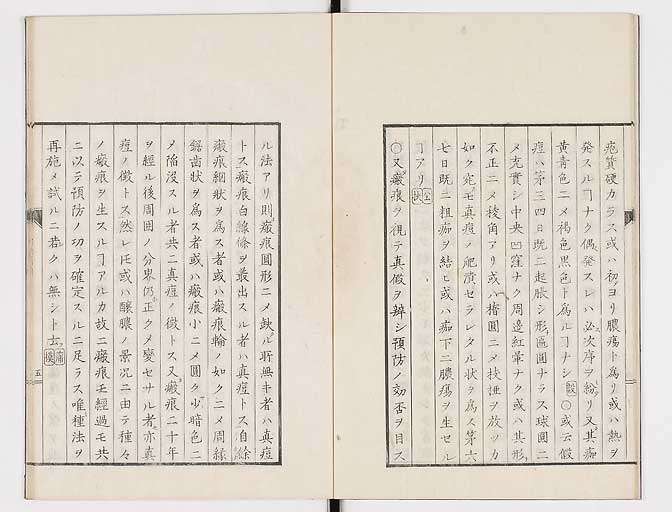 疱質硬カラス或ハ初ヨリ膿瘍ト為リ或ハ熱ヲ
発スルヿナク偶發スレハ必次序ヲ紛リ又其痂
黄青色ニメ褐色黒色ト為ルヿナシ 〇或云假
痘ハ第三四日既ニ起脹シ形匾圓ナラス球圓ニ
メ充實シ中央凹窪ナク周邊紅暈ナク或ハ其形
不正ニメ稜角アリ或ハ楕圓ニメ枝ヲ放ツカ
如ク宛モ真痘ノ爬潰セラレタル状ヲ爲ス第六
七日既ニ粗痂ヲ結ヒ或ハ痂下ニ膿瘍ヲ生セル
ヿアリ
〇又瘢痕ヲ視テ真假ヲ辨シ預防ノ効否ヲ目ス
ル法アリ則瘢痕圓形ニメ缺ル所無キ者ハ真痘
トス瘢痕白線條ヲ叢出スル者ハ真痘トス自餘
瘢痕綱状ヲ爲ス者或ハ瘢痕輪ノ如クニメ周縁
鋸歯状ヲ爲ス者或ハ瘢痕小ニメ圓ク少暗色ニ
メ陥没スル者共ニ真痘ノ徴トス又瘢痕二十年
ヲ經ル後周囲ノ分界仍正クメ變セサル者亦真
痘ノ徴トス然レ𪜈或ハ醸膿ノ景况ニ由テ種々
ノ瘢痕ヲ生スルヿアルカ故ニ瘢痕ヲ經過モ共
ニ以テ預防ノ功ヲ確定スルニ足ラス唯種法ヲ
再施メ試ルニ若クハ無シト云
五